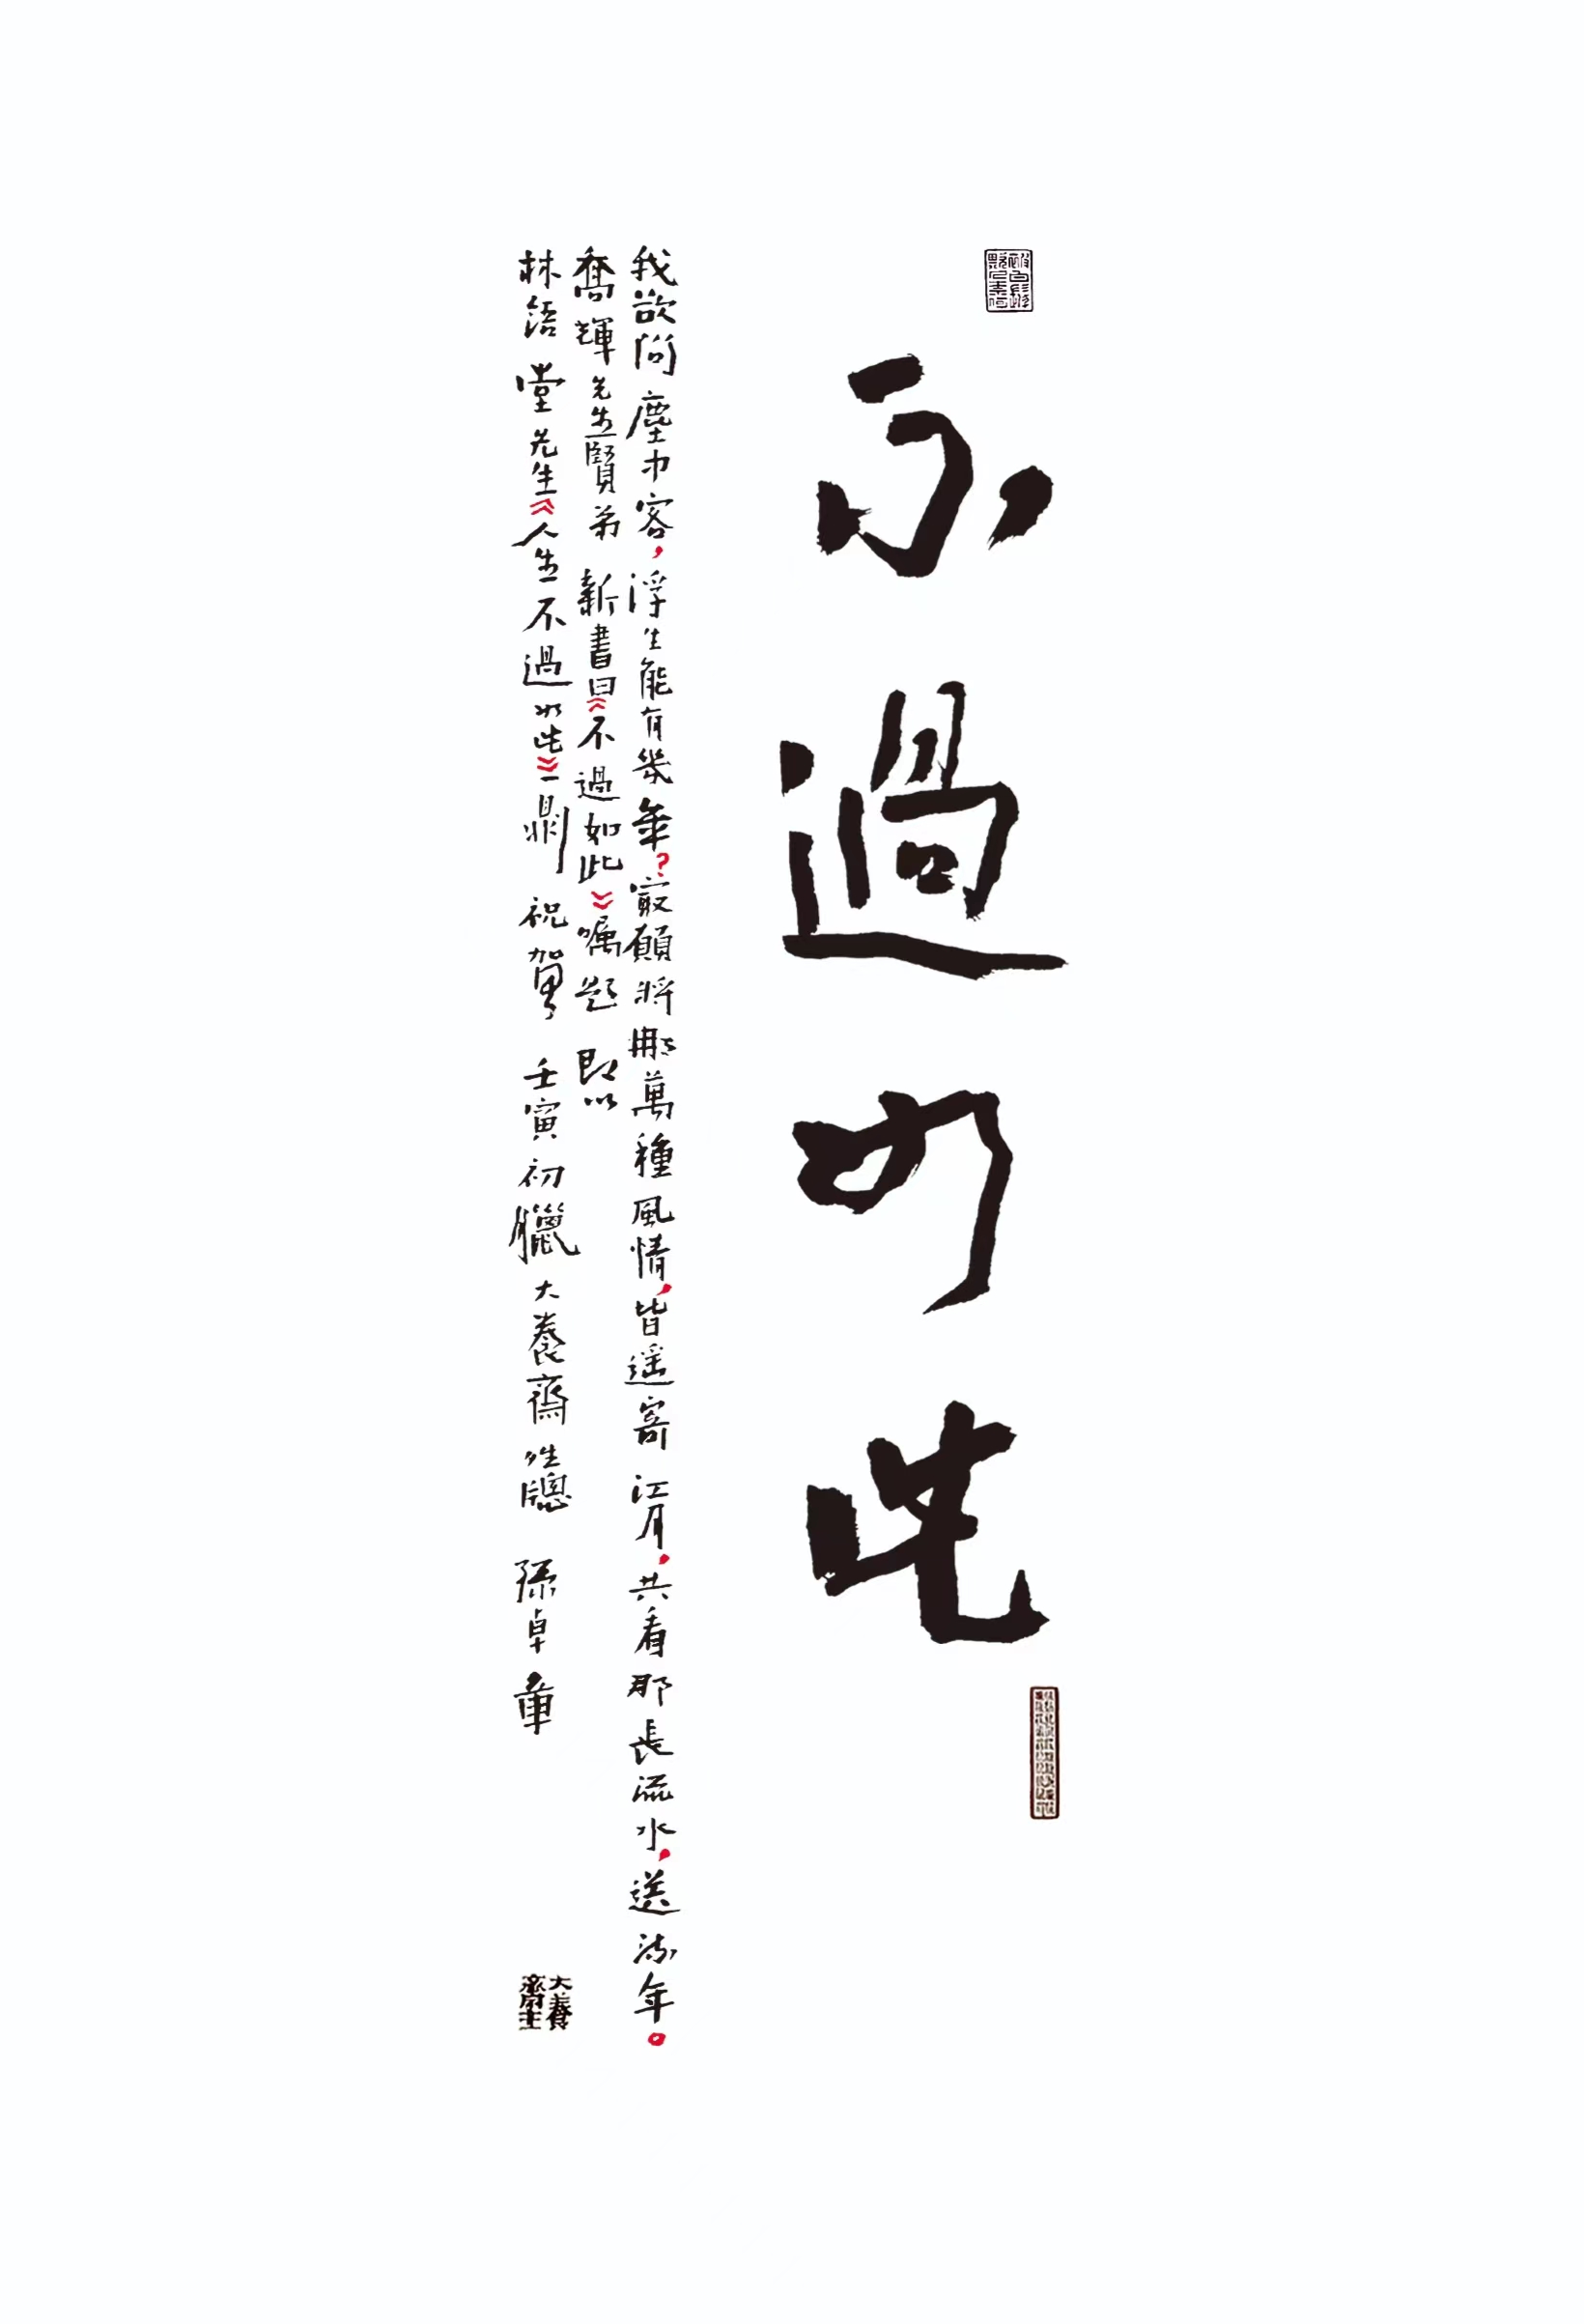 不過如此
我欲问塵巾客，浮生能有幾年？寂願將那萬種風情，皆遥寄江月，共看那長流水，送流年。
喬輝先生賢弟新書曰《不過如此》嘱题即以
林語堂先生《人生不過如此》一劇祝賀壬寅初臘大養齋牲牕孫卓章
大養齋主